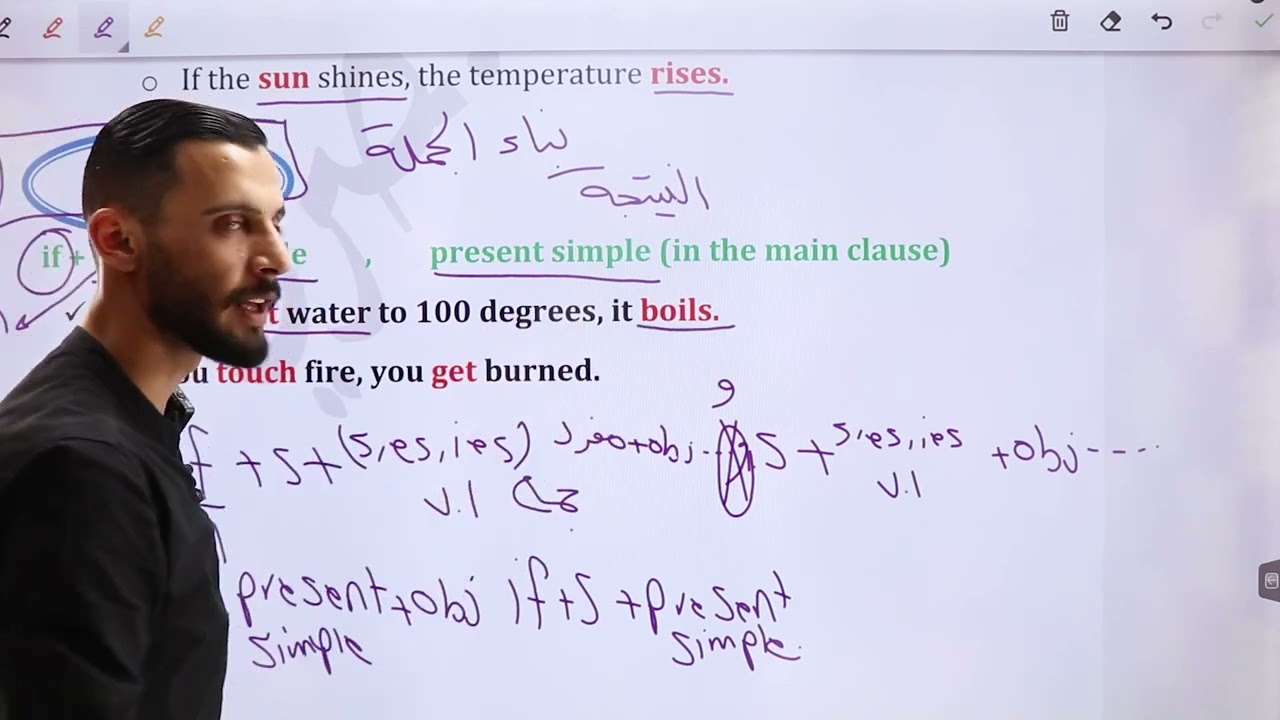 If the sun shines, the temperature rises.
بناء الجملة
النتيجة
if + e , present simple (in the main clause)
t water to 100 degrees, it boils.
u touch fire, you get burned.
f + S + (s, es, ies) مفرد + obj -- , S + s, es, ies + obj ----
v.1 جمع v.1
present + obj if + S + present
simple simple.